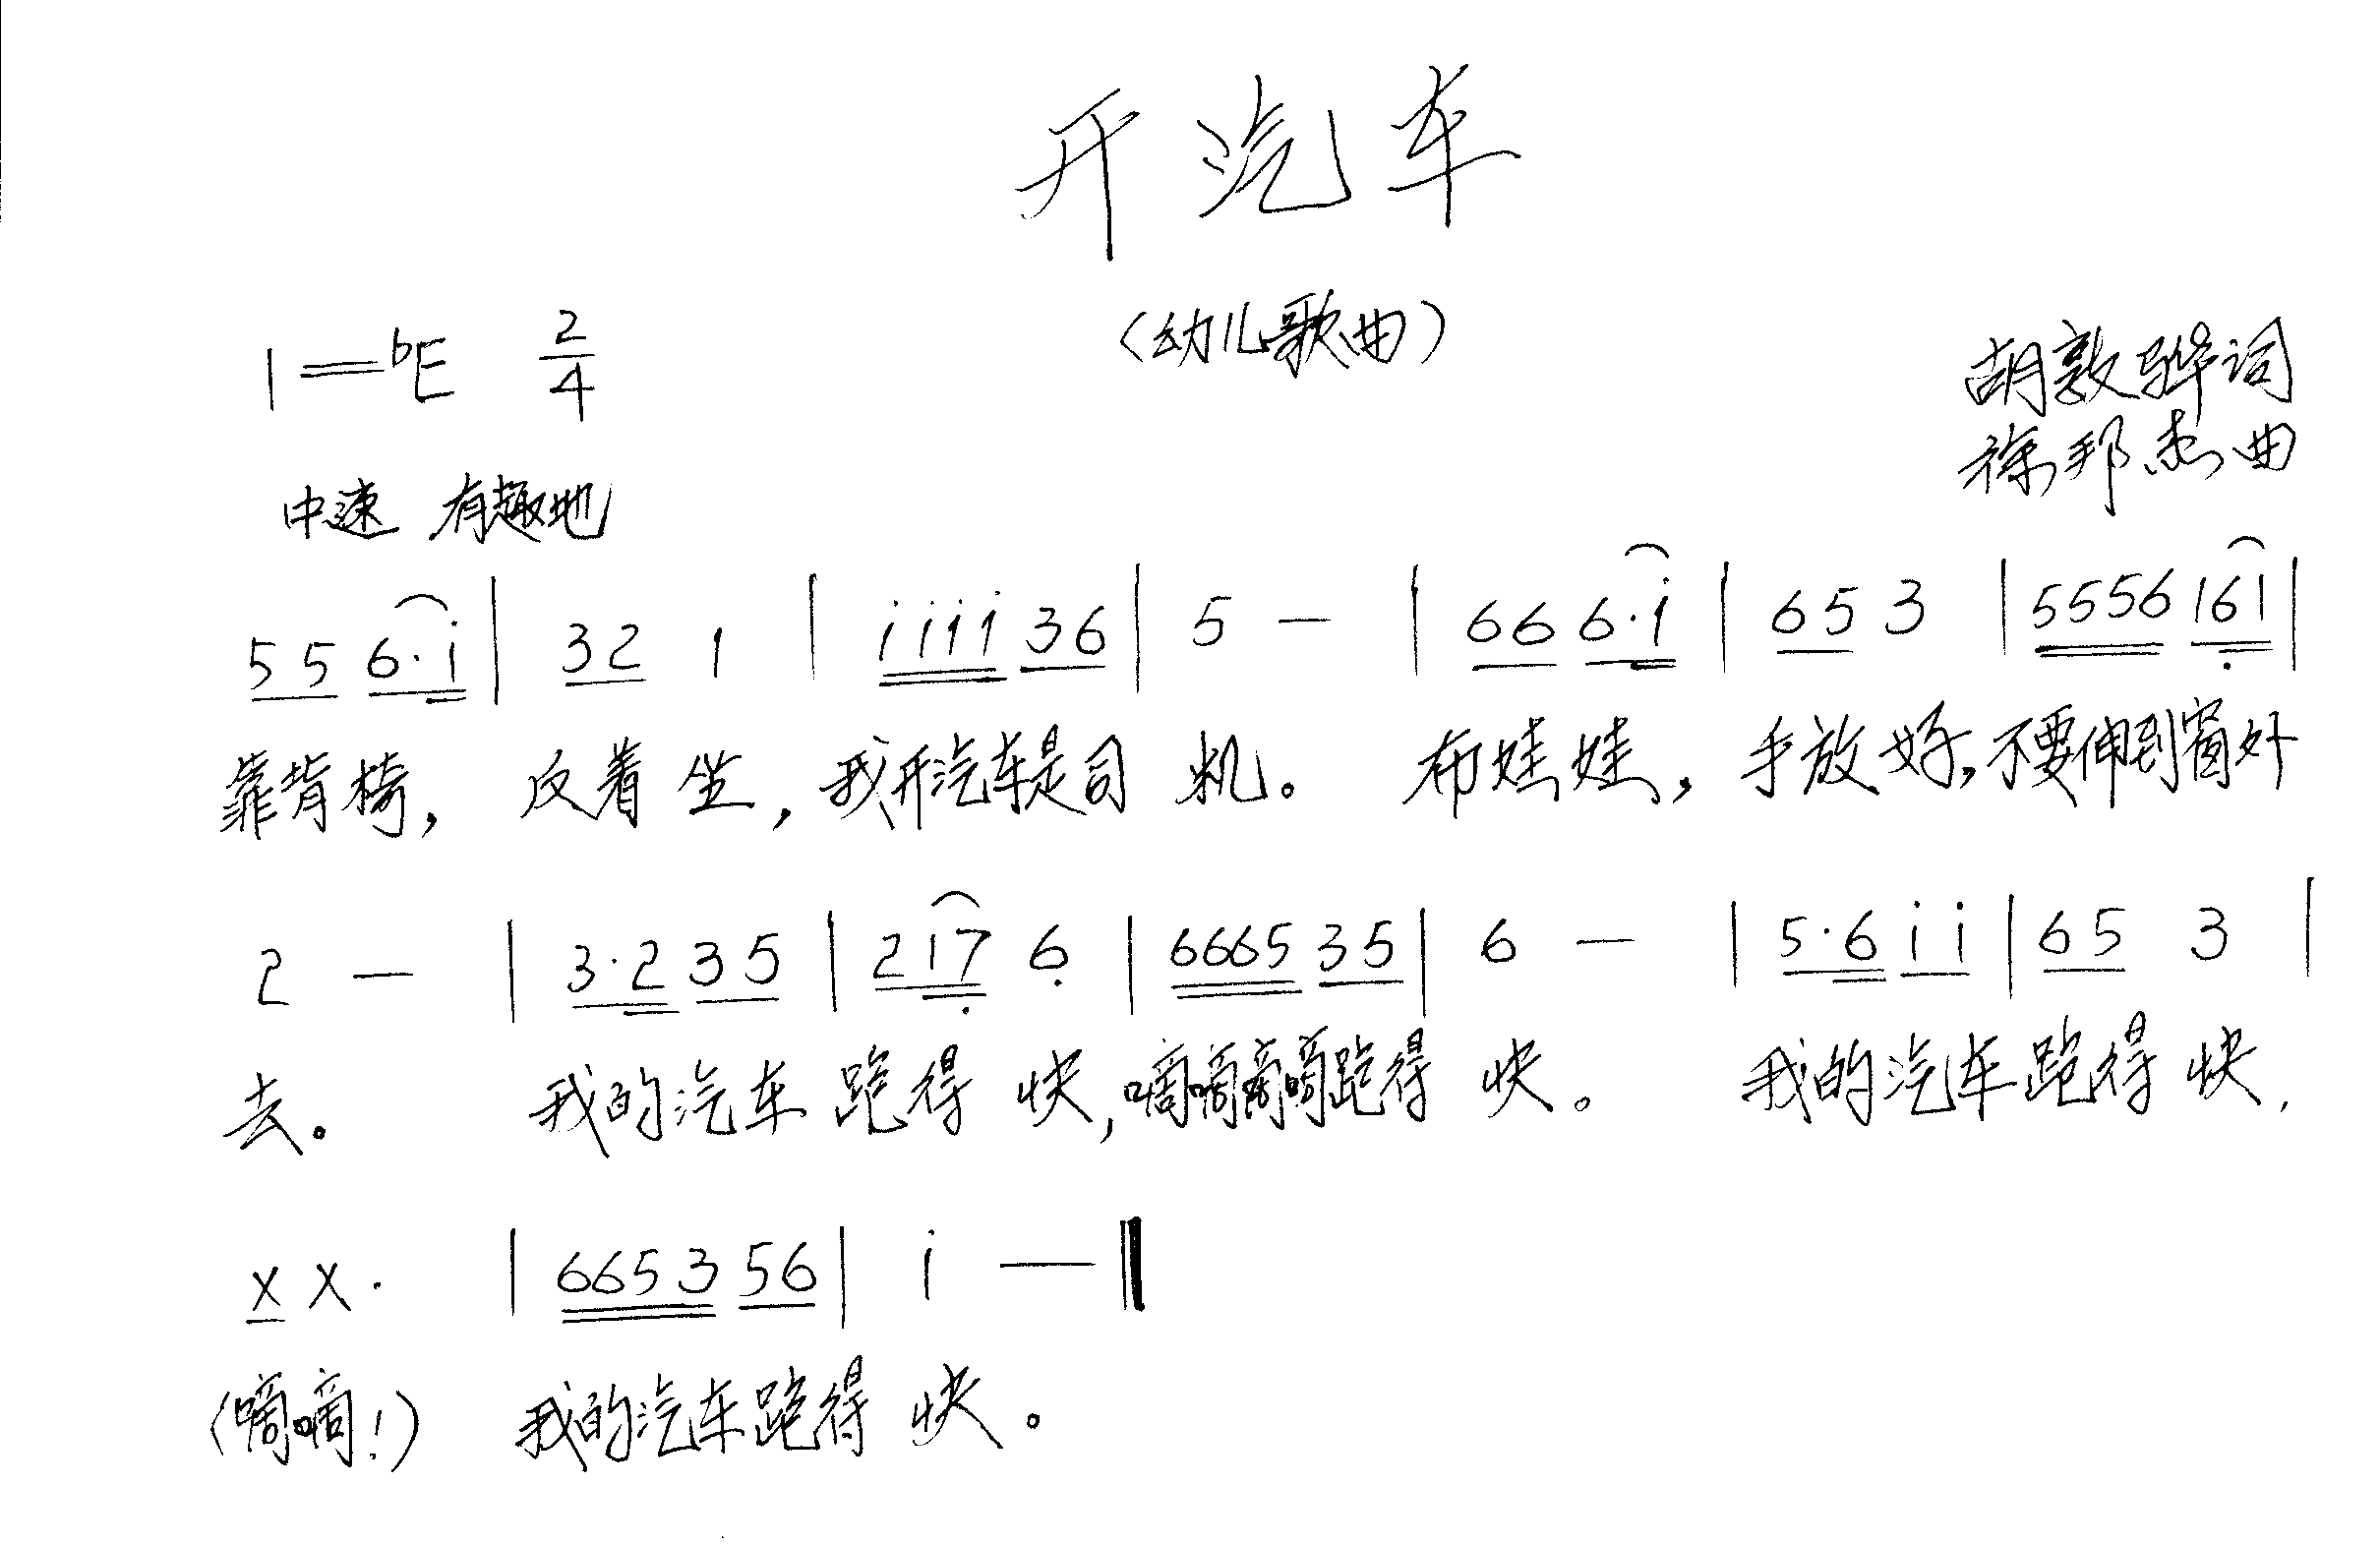 开汽车
(幼儿歌曲)
1=bE 2/4
胡敦骅词
徐邦杰曲
中速 有趣地
5 5 6·i | 3 2 1 | i i i i 3 6 | 5 — | 6 6 6·i | 6 5 3 | 5 5 5 6 1 6 1 |
靠背椅, 反着坐, 我开汽车是司机。 布娃娃, 手放好, 不要伸到窗外
2 — | 3·2 3 5 | 2 1 7 6 | 6 6 6 5 3 5 | 6 — | 5·6 i i | 6 5 3 |
去。 我的汽车跑得快, 嘀嘀嘀嘀跑得快。 我的汽车跑得快,
X X· | 6 6 5 3 5 6 | i — ‖
(嘀嘀!) 我的汽车跑得快。